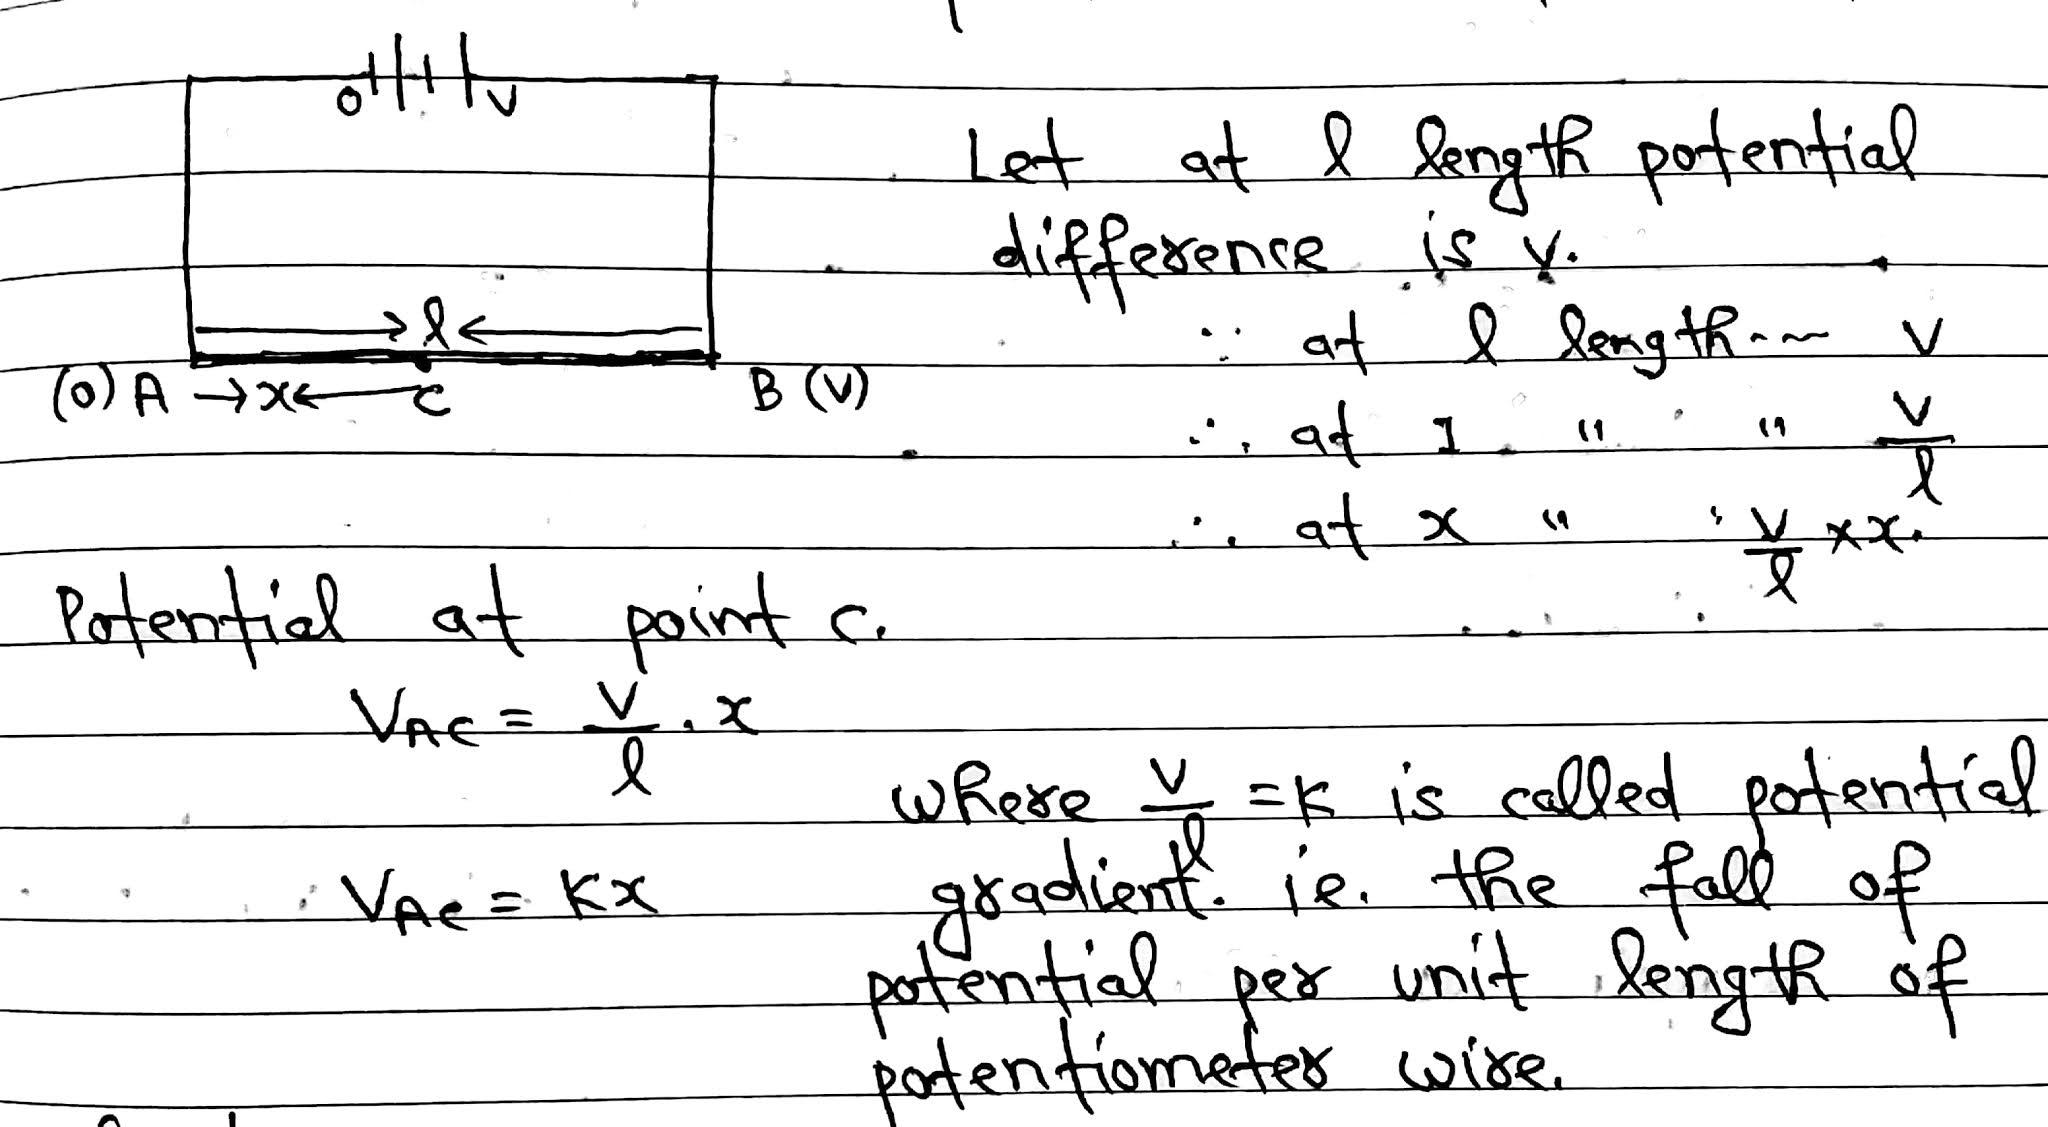 0 V
l
(0) A x C B (V)
Let at l length potential
difference is V.
∵ at l length --- V
∴ at 1 " " V/l
∴ at x " " V/l × x.
Potential at point C.
V_AC = V/l . x
V_AC = Kx
where V/l = K is called potential
gradient. ie. the fall of
potential per unit length of
potentiometer wire.